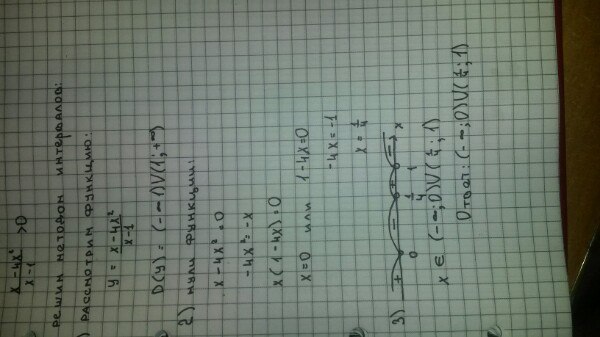 x-4x² / x-1 >0
решим методом интервалов:
) рассмотрим функцию:
y = x-4x² / x-1
D(y) = (-∞ 1)∪(1;+∞)
2) нули функции:
x-4x² = 0
-4x² = -x
x(1-4x)=0
x=0 или 1-4x=0
-4x=-1
x = 1/4
3) + - + - x
0 1/4 1
x ∈ (-∞;0)∪(1/4;1)
Ответ: (-∞;0)∪(1/4;1)